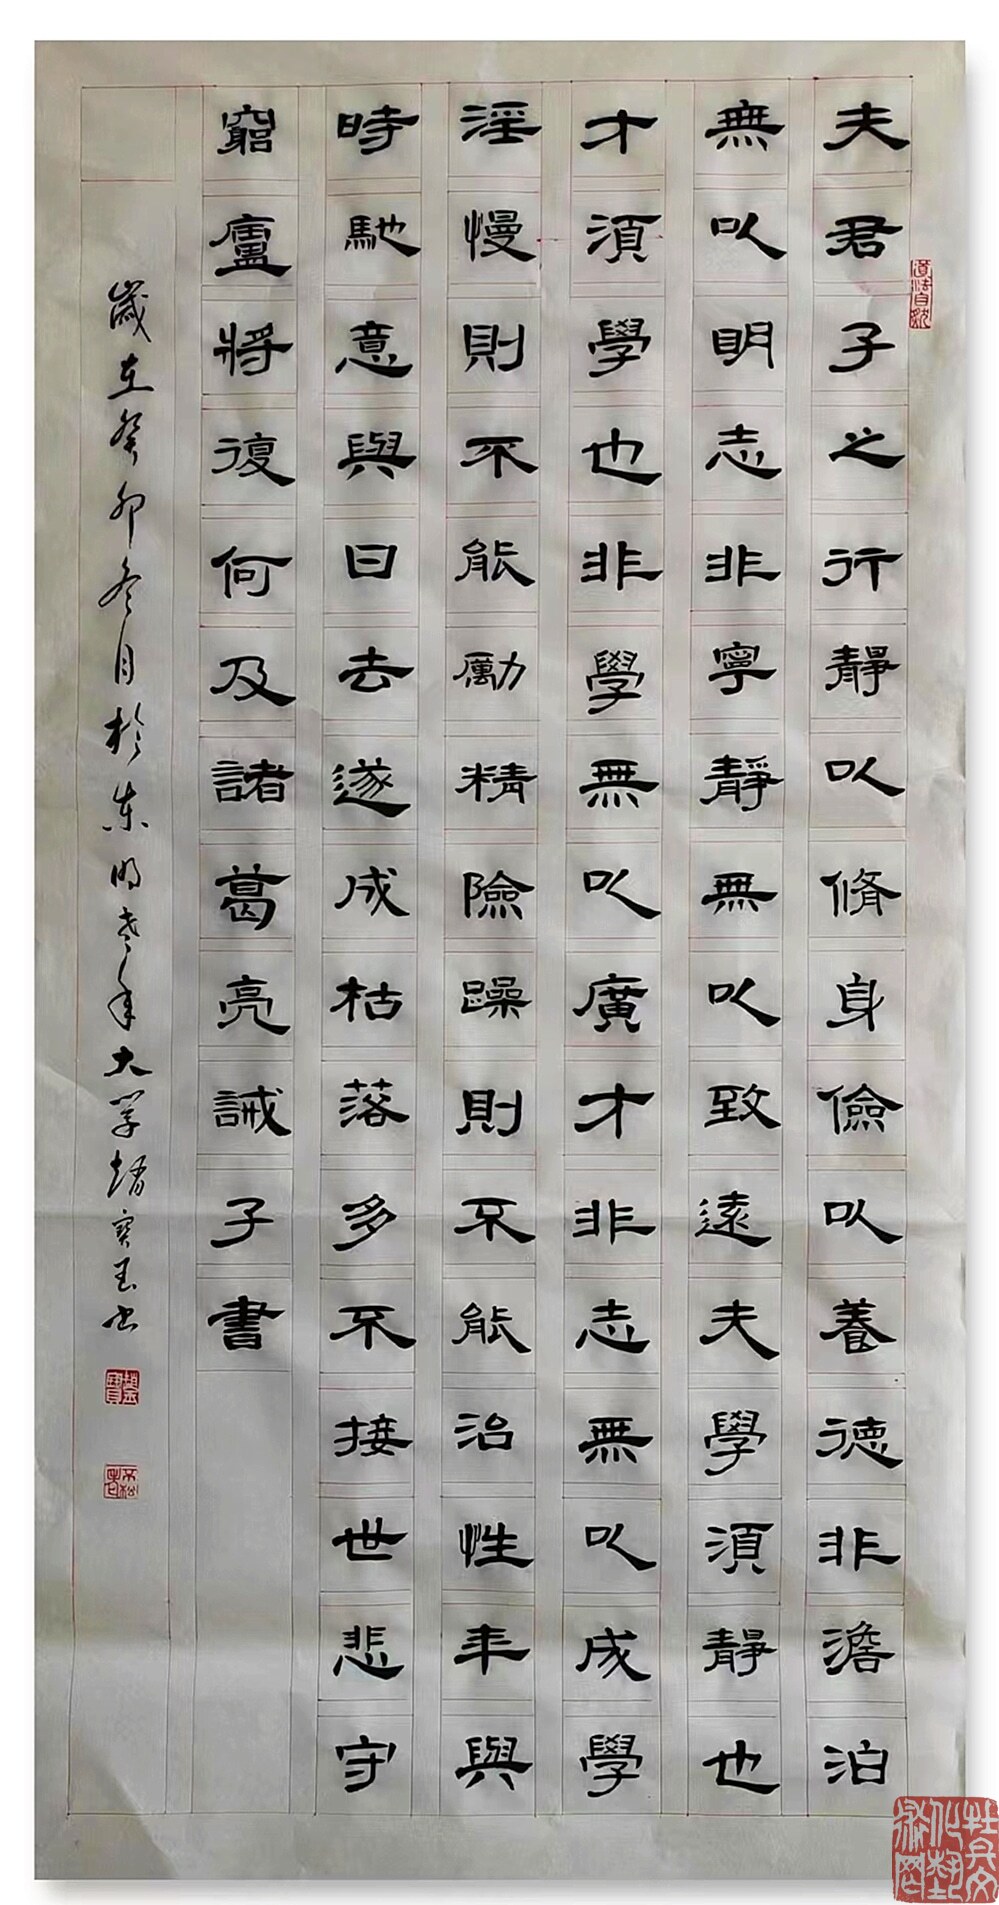 夫君子之行靜以脩身儉以養德非澹泊
無以明志非寧靜無以致遠夫學須靜也
才須學也非學無以廣才非志無以成學
淫慢則不能勵精險躁則不能治性年與
時馳意與日去遂成枯落多不接世悲守
窮廬將復何及諸葛亮誡子書
歲在癸卯冬月於东明老年大学趙寶玉书
道法自然